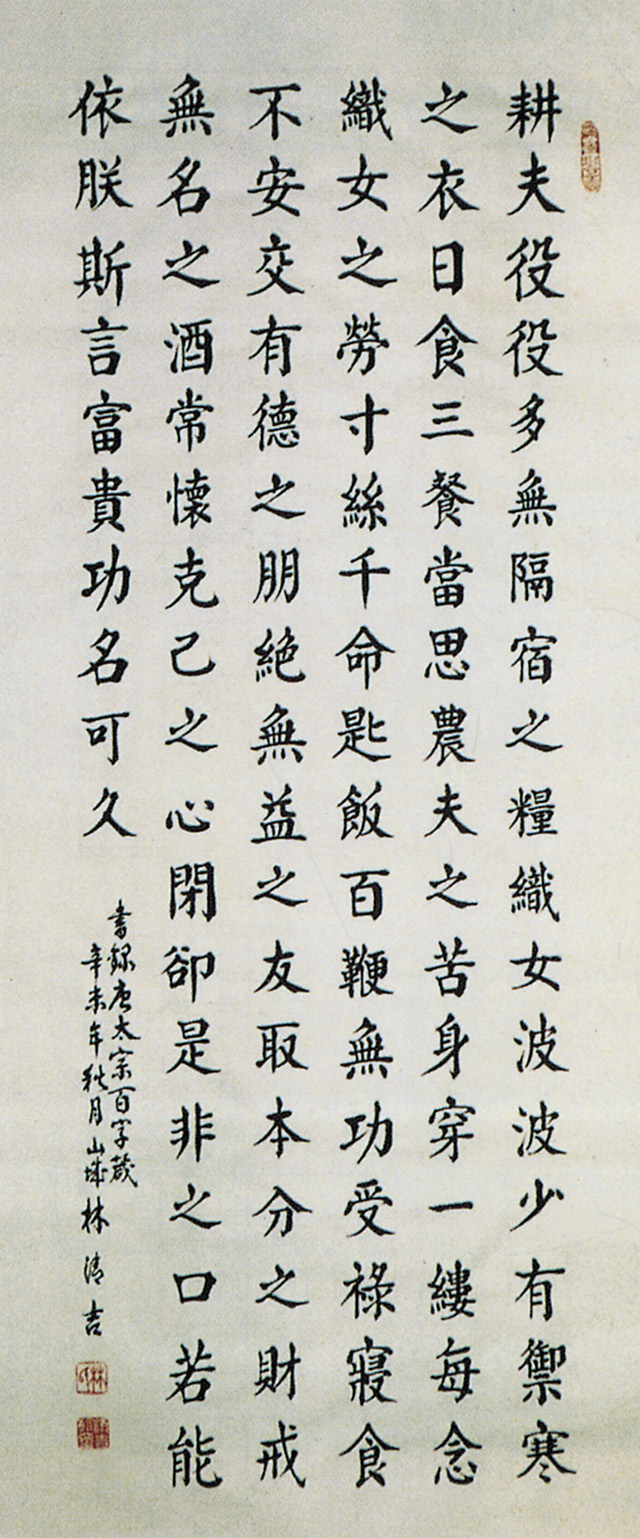 耕夫役役多無隔宿之糧織女波波少有禦寒
之衣日食三餐當思農夫之苦身穿一縷每念
織女之勞寸絲千命匙飯百鞭無功受祿寢食
不安交有德之朋絕無益之友取本分之財戒
無名之酒常懷克己之心閉卻是非之口若能
依朕斯言富貴功名可久
書錄唐太宗百字箴
辛未年秋月山城林清吉